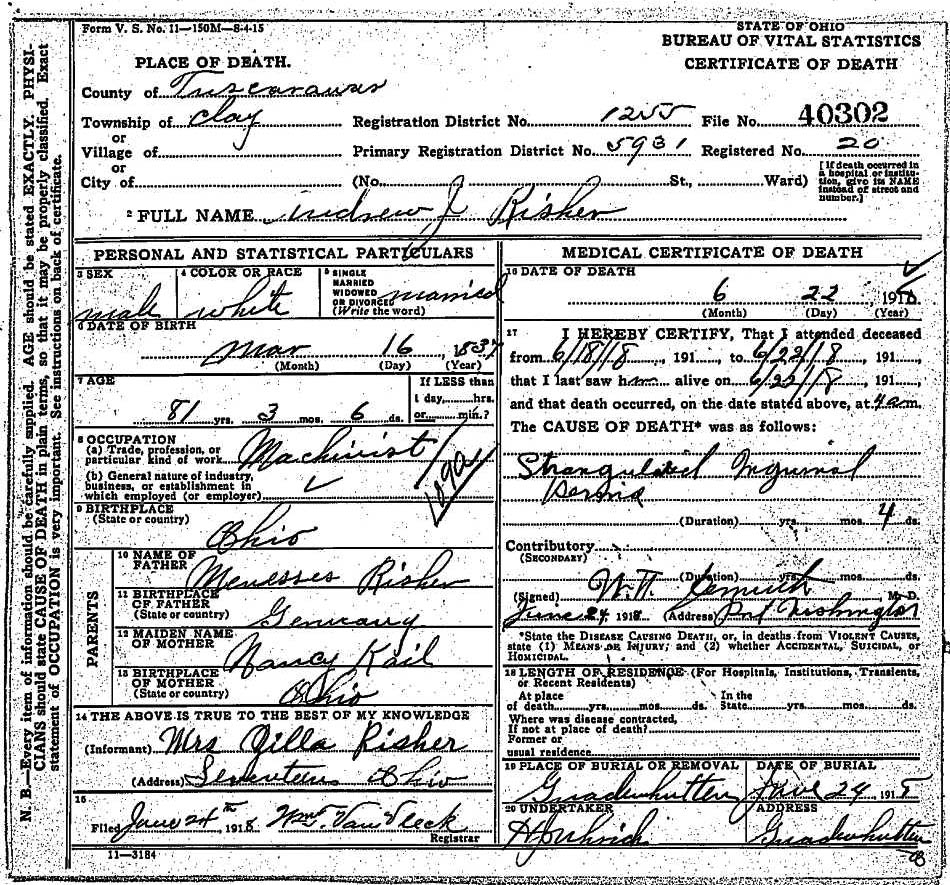 Form V. S. No. 11—150M—8-4-15
STATE OF OHIO
BUREAU OF VITAL STATISTICS
CERTIFICATE OF DEATH
PLACE OF DEATH.
County of Tuscarawas
Township of Clay Registration District No. 1255 File No. 40302
or
Village of Primary Registration District No. 5931 Registered No. 20
or
City of (No. St., Ward)
[If death occurred in a hospital or institution, give its NAME instead of street and number.]
2 FULL NAME Andrew J Risher
PERSONAL AND STATISTICAL PARTICULARS
3 SEX male
4 COLOR OR RACE white
5 SINGLE MARRIED WIDOWED OR DIVORCED (Write the word) married
6 DATE OF BIRTH
Mar 16, 1837
(Month) (Day) (Year)
7 AGE
81 yrs. 3 mos. 6 ds.
If LESS than
1 day, hrs.
or min.?
8 OCCUPATION
(a) Trade, profession, or
particular kind of work Machinist
(b) General nature of industry,
business, or establishment in
which employed (or employer)
9 BIRTHPLACE
(State or country) Ohio
PARENTS
10 NAME OF
FATHER Menesses Risher
11 BIRTHPLACE
OF FATHER
(State or country) Germany
12 MAIDEN NAME
OF MOTHER Nancy Kail
13 BIRTHPLACE
OF MOTHER
(State or country) Ohio
14 THE ABOVE IS TRUE TO THE BEST OF MY KNOWLEDGE
(Informant) Mrs Risher
(Address) Seventeen Ohio
15
Filed June 24th, 1918 Wm. Van Vleck
Registrar
11—3184
MEDICAL CERTIFICATE OF DEATH
16 DATE OF DEATH
6 22, 1918
(Month) (Day) (Year)
17 I HEREBY CERTIFY, That I attended deceased
from 6/18/18, 191 , to 6/22/18, 191 ,
that I last saw him alive on 6/22/18, 191 ,
and that death occurred, on the date stated above, at 4 a m.
The CAUSE OF DEATH* was as follows:
Strangulated Inguinal
Hernia
(Duration) yrs. mos. 4 ds.
Contributory
(SECONDARY)
(Duration) yrs. mos. ds.
(Signed) M. D.
June 24, 1918 (Address) Port Washington
*State the DISEASE CAUSING DEATH, or, in deaths from VIOLENT CAUSES,
state (1) MEANS OF INJURY; and (2) whether ACCIDENTAL, SUICIDAL, or
HOMICIDAL.
18 LENGTH OF RESIDENCE (For Hospitals, Institutions, Transients,
or Recent Residents)
At place In the
of death yrs. mos. ds. State yrs. mos. ds.
Where was disease contracted,
If not at place of death?
Former or
usual residence
19 PLACE OF BURIAL OR REMOVAL
Gnadenhutten
DATE OF BURIAL
June 24, 191
20 UNDERTAKER
ADDRESS
Gnadenhutten
N. B.—Every item of information should be carefully supplied. AGE should be stated EXACTLY. PHYSI-
CIANS should state CAUSE OF DEATH in plain terms, so that it may be properly classified. Exact
statement of OCCUPATION is very important. See instructions on back of certificate.